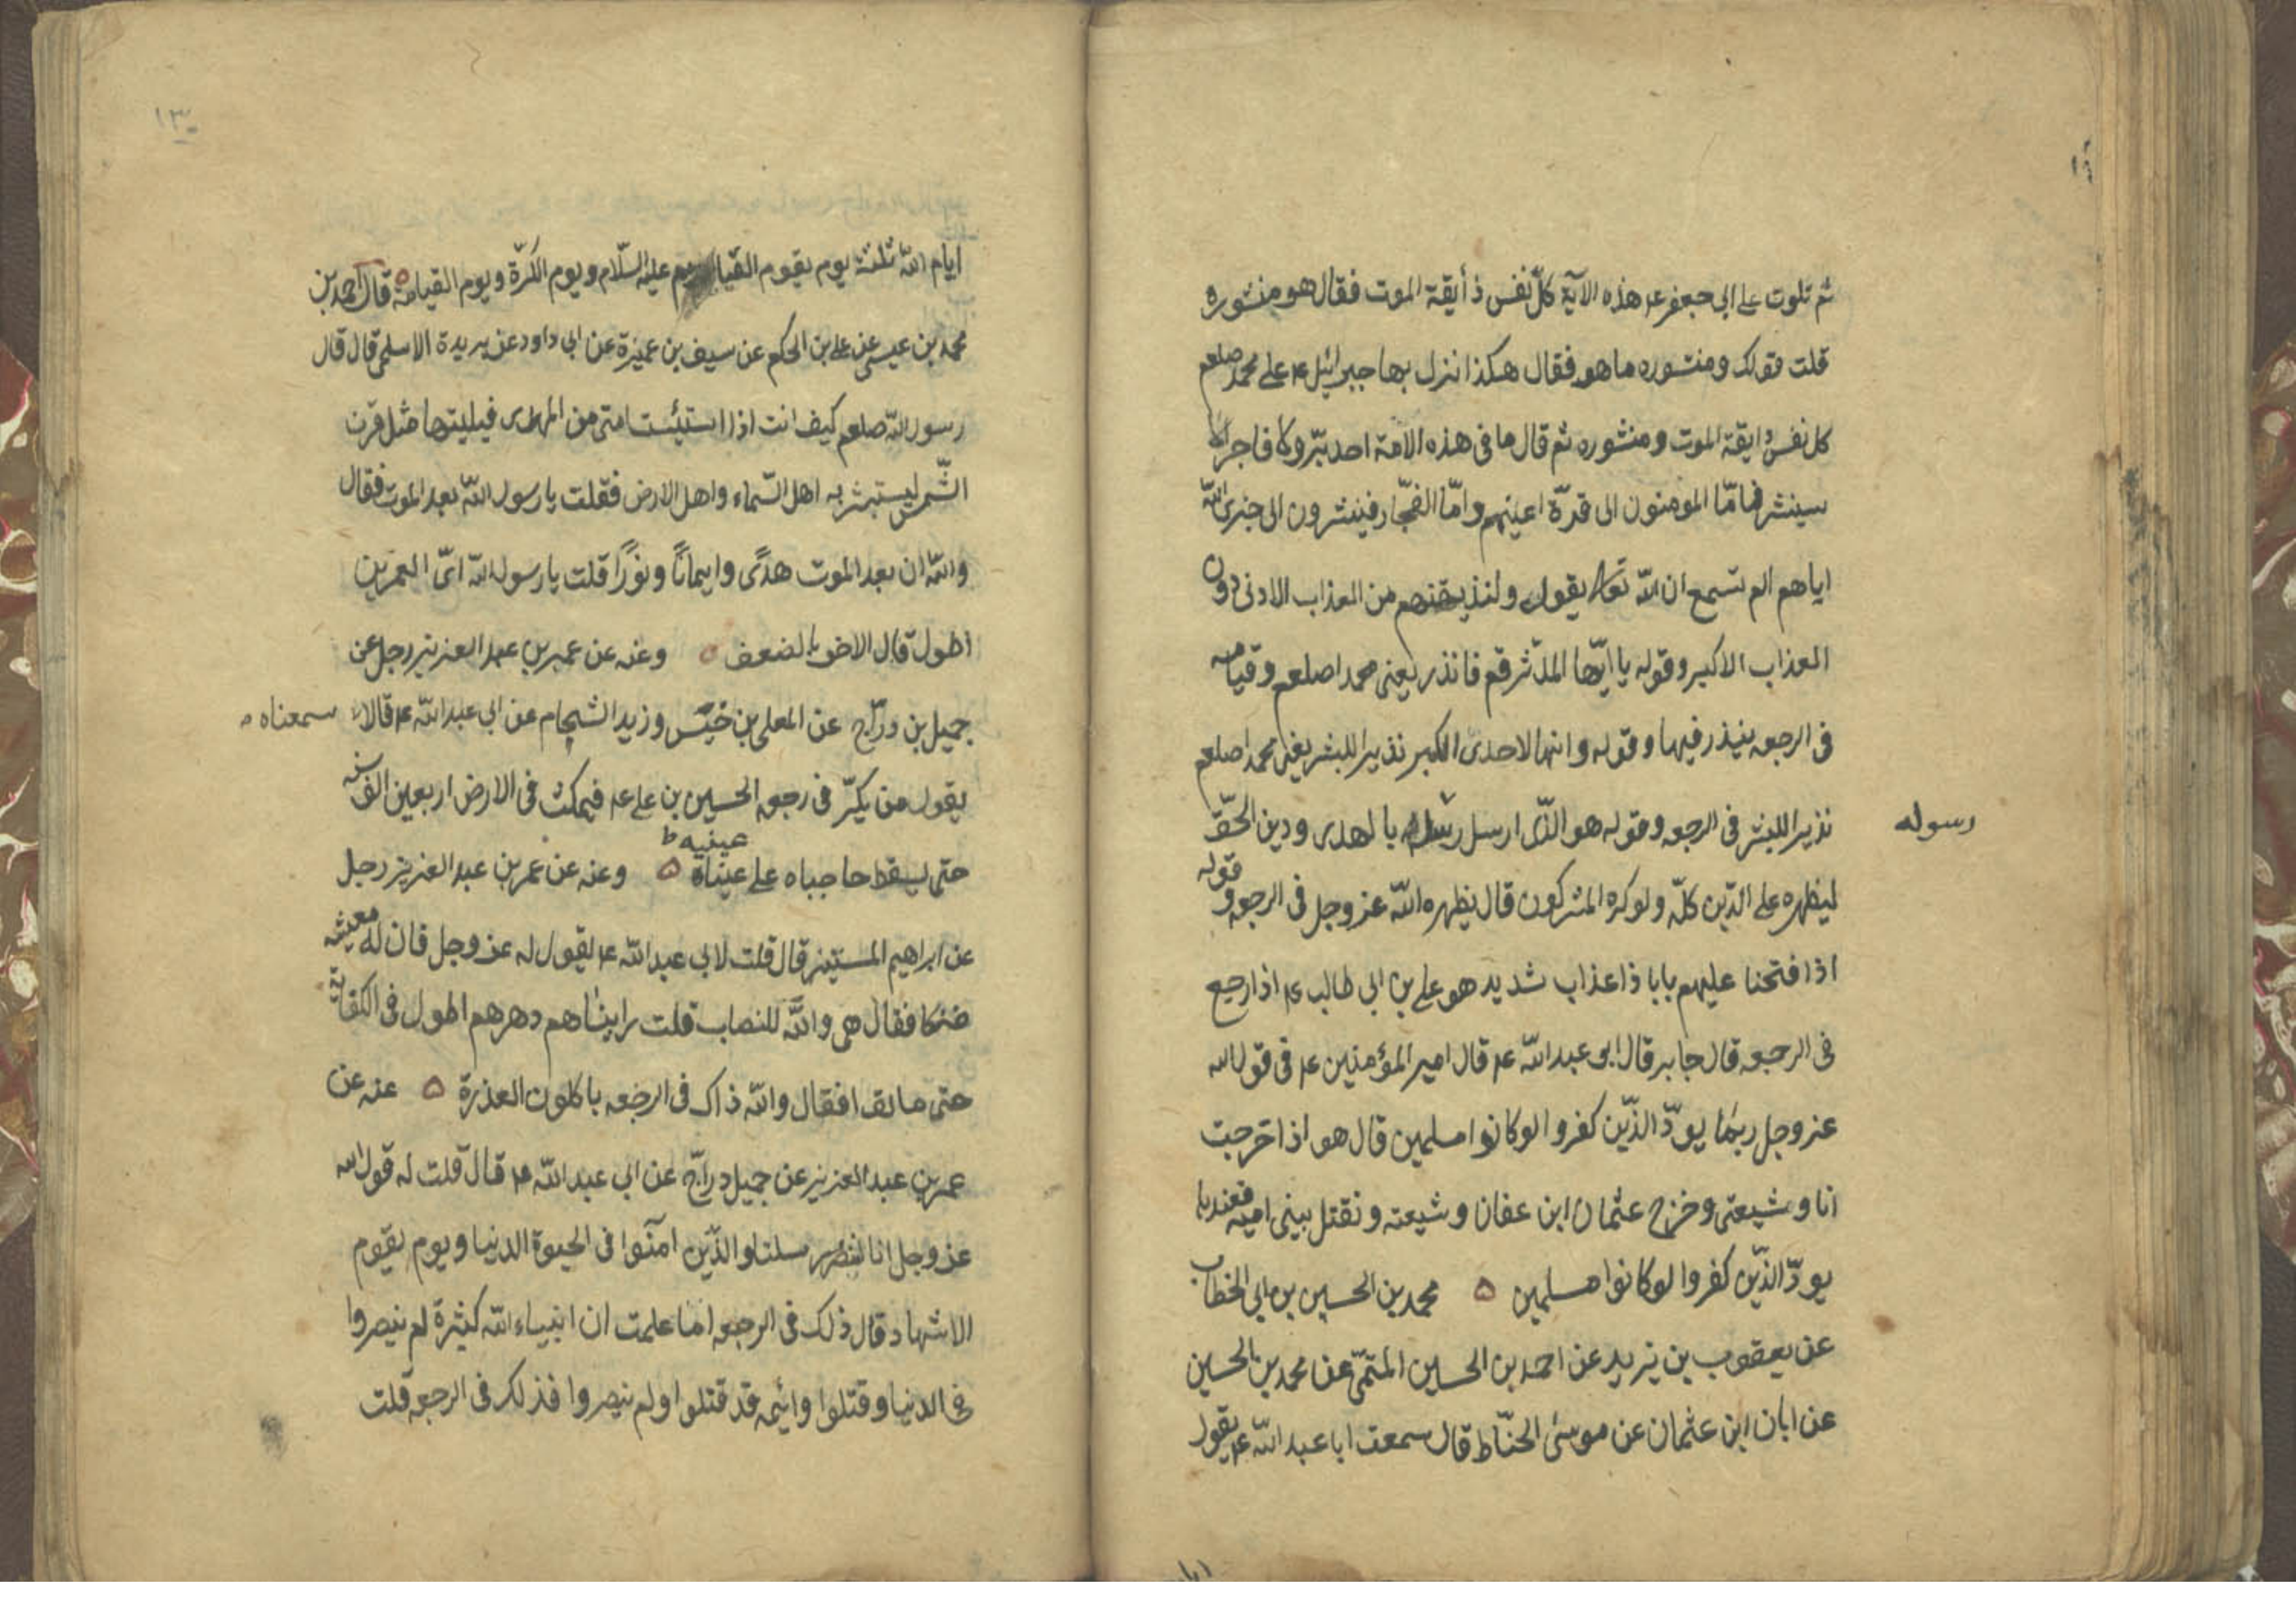 ثم تلوت على ابى جعفر ع هذه الآية كلّ نفس ذأيقة الموت فقال هو منشوره
قلت قولك ومنشوره ما هو فقال هكذا نزل بها جبرائيل ع على محمد صلعم
كل نفس ذايقة الموت ومنشوره ثم قال ما فى هذه الامة احد برّ ولا فاجر الا
سينشر فامّا المومنون الى قرّة اعينهم وامّا الفجّار فينشرون الى خزى الله
اياهم الم تسمع ان الله تعالى يقول ولنذيقنهم من العذاب الادنى دون
العذاب الاكبر وقوله يا ايّها المدّثر قم فانذر يعنى محمدا صلعم وقيامه
فى الرجعه ينذر فيها وقوله وانها لاحدى الكبر نذيرا للبشر يعنى محمدا صلعم
نذيرا للبشر فى الرجعه وقوله هو الذّى ارسل رسله بالهدى ودين الحقّ
رسوله
ليظهره على الدّين كلّه ولو كره المشركون قال يظهره الله عز وجل فى الرجعه وقوله
اذا فتحنا عليهم بابا ذا عذاب شديد هو على بن ابى طالب ع اذا رجع
فى الرجعه قال جابر قال ابى عبد الله ع قال امير المؤمنين ع فى قول الله
عز وجل ربما يودّ الذّين كفروا لو كانوا مسلمين قال هو اذا خرجت
انا وشيعتى وخرج عثمان ابن عفان وشيعته ونقتل بينى اميه فعندها
يودّ الذّين كفروا لو كانوا مسلمين ه محمد بن الحسين بن ابى الخطاب
عن يعقوب بن يزيد عن احمد بن الحسين المتمّى عن محمد بن الحسين
عن ابان ابن عثمان عن موسى الحنّاط قال سمعت ابا عبد الله ع يقول
ايام
١٣
ايام الله ثلثة يوم يقوم القيا عليه السّلام ويوم الكرّة ويوم القيامة ه قال احمد بن
محمد بن عيسى عن على بن الحكم عن سيف بن عميرة عن ابى داود عن بريدة الاسلمى قال قال
رسول الله صلعم كيف انت اذا استيئست امتى من المهدى فيليتها مثل قرن
الشّمس ليستبشر به اهل السّماء واهل الارض فقلت يا رسول الله بعد الموت فقال
والله ان بعد الموت هدًى وايمانًا ونورًا قلت يا رسول الله اىّ العمرين
اطول قال الاخر بالضعف ه وعنه عن عمر بن عبد العزيز رجل عن
جميل بن درّاج عن المعلى بن خنيس وزيد الشحام عن ابى عبد الله ع قالا سمعناه
يقول من يكرّ فى رجعه الحسين بن على ع فيمكث فى الارض اربعين الف سنه
عينيه ط
حتى يسقط حاجباه على عيناه ه وعنه عن عمر بن عبد العزيز رجل
عن ابراهيم المستنير قال قلت لابى عبد الله ع لقول له عز وجل فان له معيشه
ضنكا فقال هى والله للنصاب قلت رايناهم دهرهم اطول فى الكفاية
حتى ماتوا فقال والله ذاك فى الرجعه ياكلون العذرة ه عنه عن
عمر بن عبد العزيز عن جميل دراج عن ابى عبد الله ع قال قلت له قول الله
عز وجل انا لننصر رسلنا والذّين امنوا فى الحيوة الدنيا ويوم يقوم
الاشهاد قال ذلك فى الرجعه اما علمت ان انبياء الله كثيرة لم نيصروا
فى الدنيا وقتلوا وائمه قد قتلوا ولم نيصروا فذلك فى الرجعه قلت